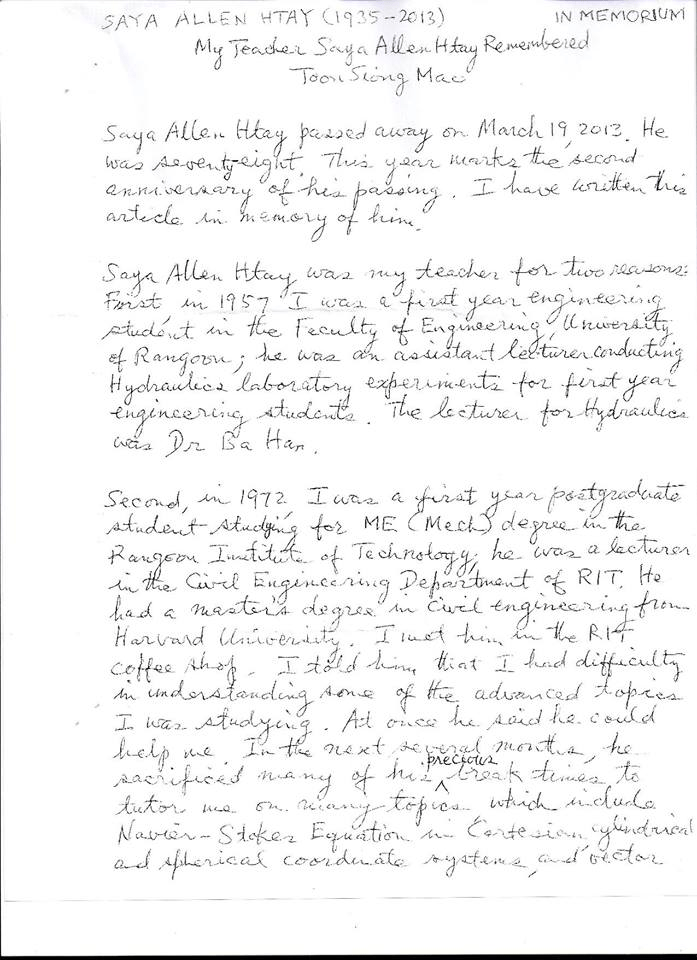 SAYA ALLEN HTAY (1935-2013) IN MEMORIUM
My Teacher Saya Allen Htay Remembered
Toon Siong Mac
Saya Allen Htay passed away on March 19, 2013. He
was seventy-eight. This year marks the second
anniversary of his passing. I have written this
article in memory of him.
Saya Allen Htay was my teacher for two reasons:
First, in 1957, I was a first year engineering
student in the Faculty of Engineering, University
of Rangoon; he was an assistant lecturer conducting
Hydraulics laboratory experiments for first year
engineering students. The lecturer for Hydraulics
was Dr Ba Han.
Second, in 1972, I was a first year postgraduate
student studying for ME (Mech) degree in the
Rangoon Institute of Technology; he was a lecturer
in the Civil Engineering Department of RIT. He
had a master's degree in Civil engineering from
Harvard University. I met him in the RIT
coffee shop. I told him that I had difficulty
in understanding some of the advanced topics
I was studying. At once he said he could
help me. In the next several months, he
sacrificed many of his precious break times to
tutor me on many topics which include
Navier-Stokes Equation in Cartesian, cylindrical
and spherical coordinate systems, and vector